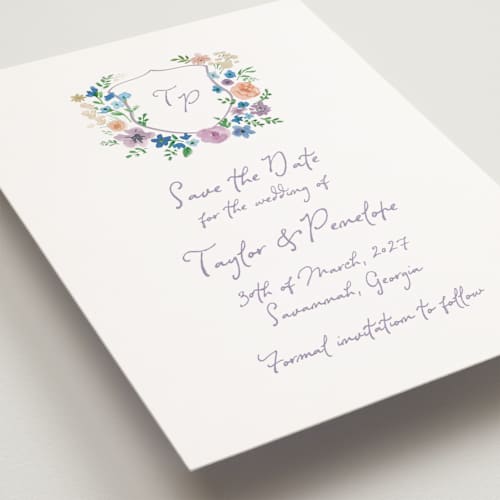 TP
Save the Date
for the wedding of
Taylor & Penelope
30th of March, 2027
Savannah, Georgia
Formal invitation to follow